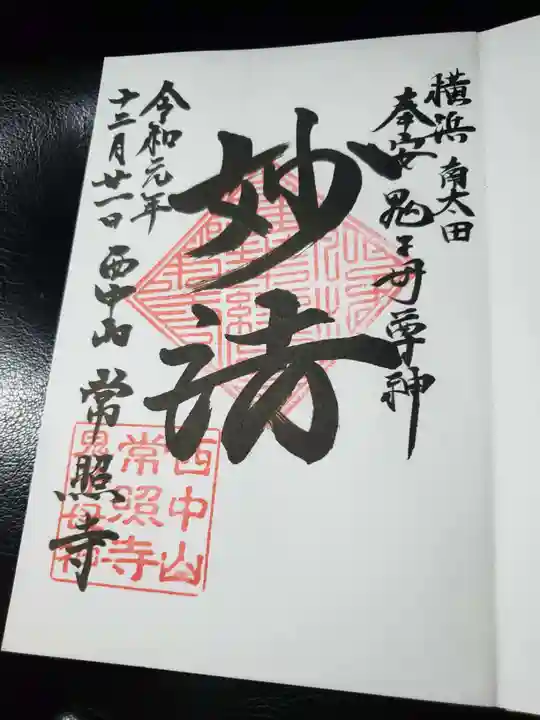 横浜 南太田
奉安 鬼子母尊神
妙法
令和元年
十二月廿一日 西中山 常照寺
西中山
常照寺
鬼子母神